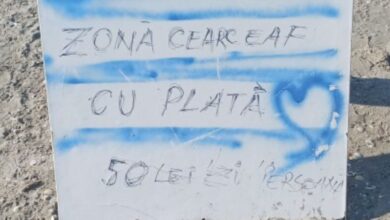 ZONĂ CEARCEAF
CU PLATĂ
50 LEI ZI PERSOANĂ